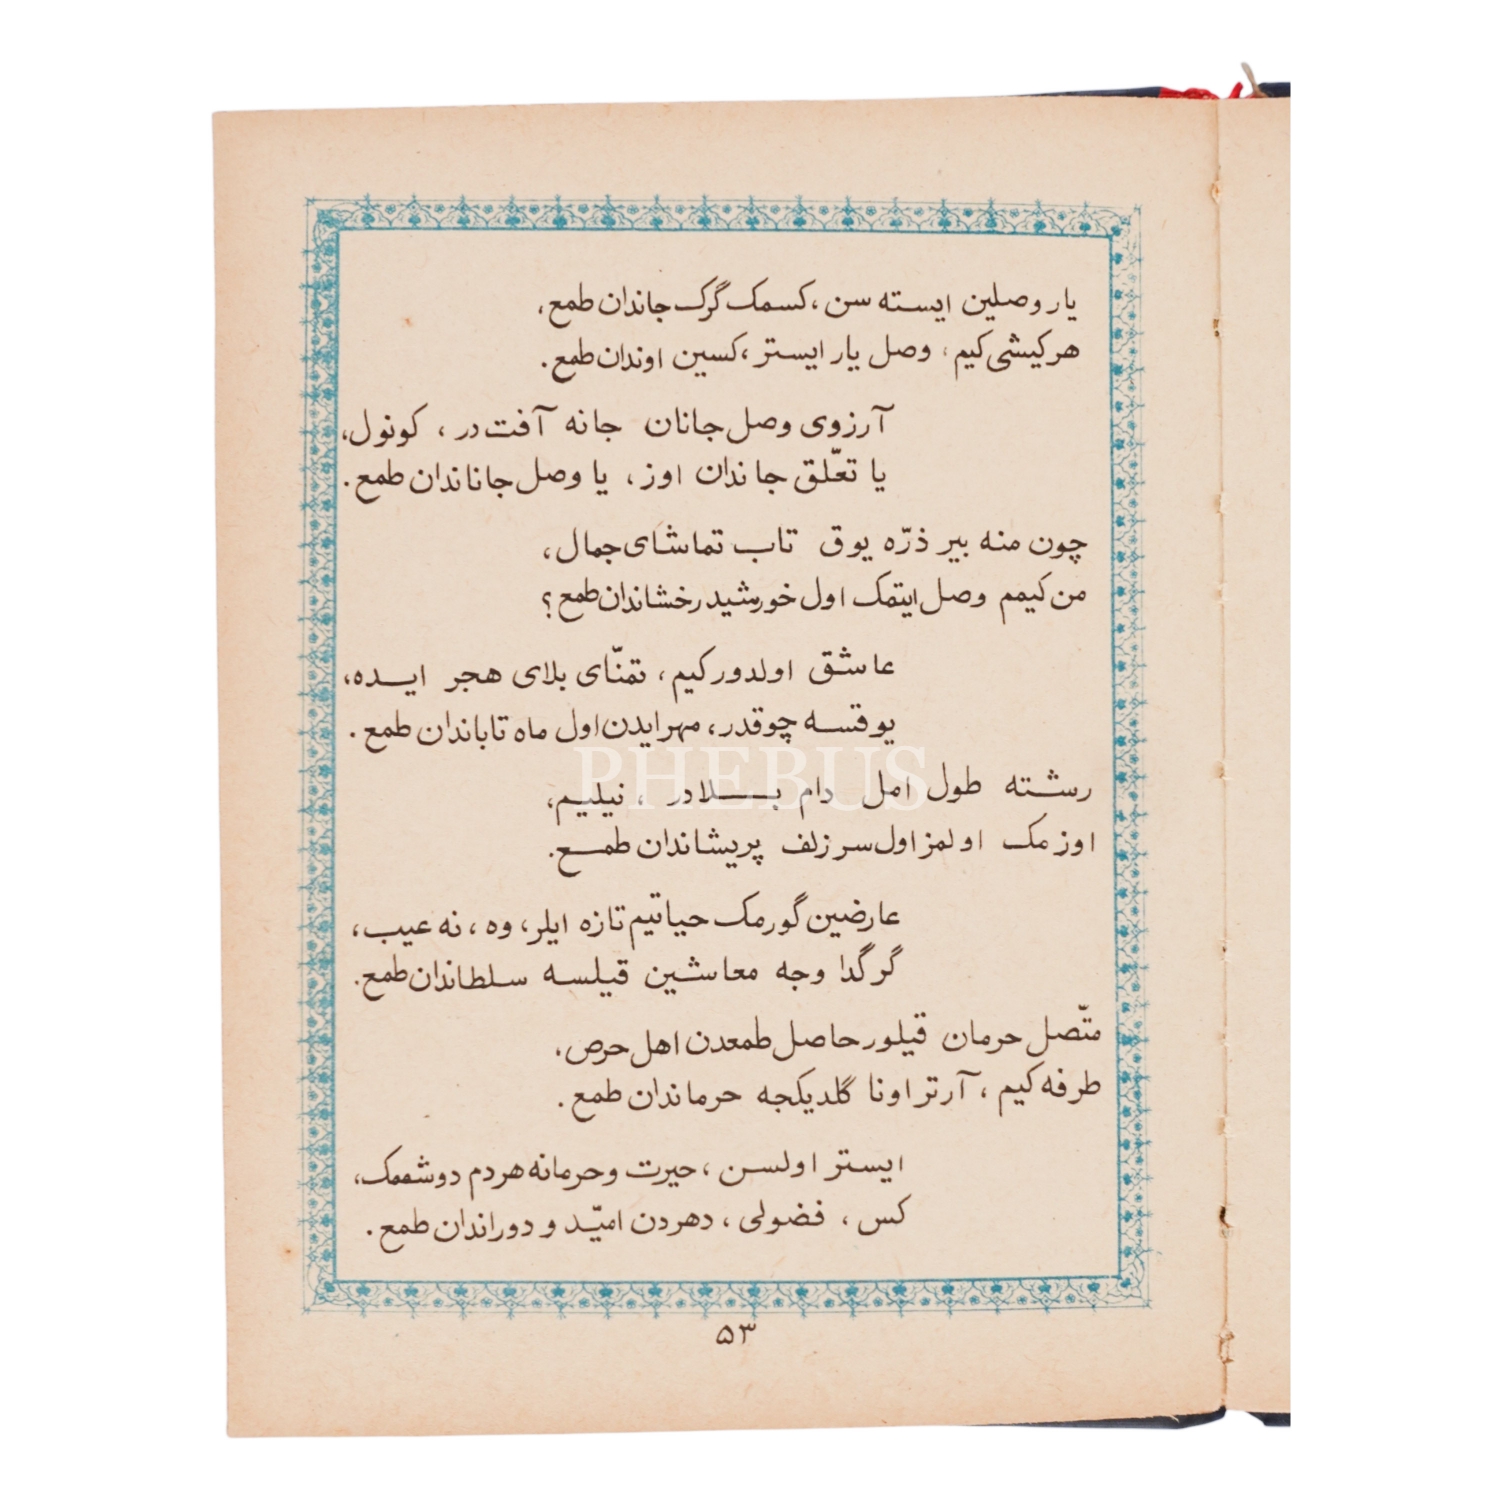 یار وصلین ایسته سن ،کسمک گرک جاندان طمع،
هر کیشی کیم، وصل یار ایستر ،کسین اوندان طمع.
آرزوی وصل جانان جانه آفت در ، کونول،
یا تعلّق جاندان اوز ، یا وصل جاناندان طمع.
چون منه بیر ذرّه یوق تاب تماشای جمال،
من کیمم وصل ایتمک اول خورشید رخشاندان طمع؟
عاشق اولدور کیم، تمنّای بلای هجر ایده،
یوقسه چوقدر، مهر ایدن اول ماه تاباندان طمع.
رشته طول امل دام بلادر ، نیلیم،
اوزمک اولمز اول سر زلف پریشاندان طمع.
عارضین گورمک حیاتیم تازه ایلر، وه ، نه عیب،
گر گدا وجه معاشین قیلسه سلطاندان طمع.
متّصل حرمان قیلور حاصل طمعدن اهل حرص،
طرفه کیم ، آرتر اونا گلدیکجه حرماندان طمع.
ایستر اولسن ،حیرت و حرمانه هردم دوشممک،
کس ، فضولی ، دهردن امیّد و دوراندان طمع.
۵۳
PHEBUS